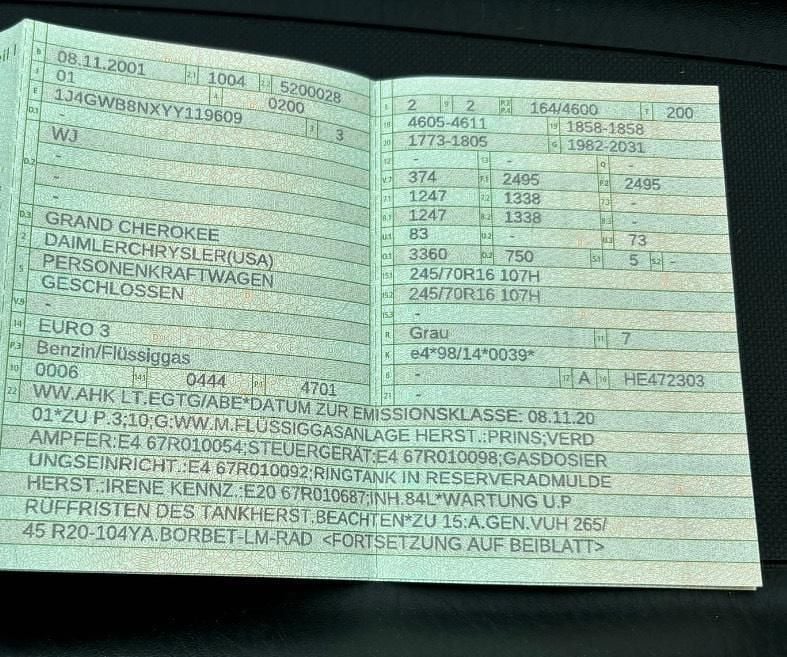 B 08.11.2001 2.1 1004 2.2 5200028
J 01 4 0200
E 1J4GWB8NXYY119609 3 3
D.1 -
WJ
D.2 -
-
-
D.3 GRAND CHEROKEE
2 DAIMLERCHRYSLER(USA)
5 PERSONENKRAFTWAGEN
GESCHLOSSEN
V.9 -
14 EURO 3
P.3 Benzin/Flüssiggas
10 0006 14.1 0444 P.1 4701
L 2 9 2 P.2 P.4 164/4600 T 200
18 4605-4611 19 1858-1858
20 1773-1805 G 1982-2031
12 - 13 - Q -
V.7 374 F.1 2495 F.2 2495
7.1 1247 7.2 1338 7.3 -
8.1 1247 8.2 1338 8.3 -
U.1 83 U.2 - U.3 73
O.1 3360 O.2 750 S.1 5 S.2 -
15.1 245/70R16 107H
15.2 245/70R16 107H
15.3 -
R Grau 11 7
K e4*98/14*0039*
6 - 17 A 16 HE472303
21 -
22 WW.AHK LT.EGTG/ABE*DATUM ZUR EMISSIONSKLASSE: 08.11.20
01*ZU P.3;10;G:WW.M.FLÜSSIGGASANLAGE HERST.:PRINS;VERD
AMPFER:E4 67R010054;STEUERGERÄT:E4 67R010098;GASDOSIER
UNGSEINRICHT.:E4 67R010092;RINGTANK IN RESERVERADMULDE
HERST.:IRENE KENNZ.:E20 67R010687;INH.84L*WARTUNG U.P
RÜFFRISTEN DES TANKHERST.BEACHTEN*ZU 15:A.GEN.VUH 265/
45 R20-104YA.BORBET-LM-RAD <FORTSETZUNG AUF BEIBLATT>